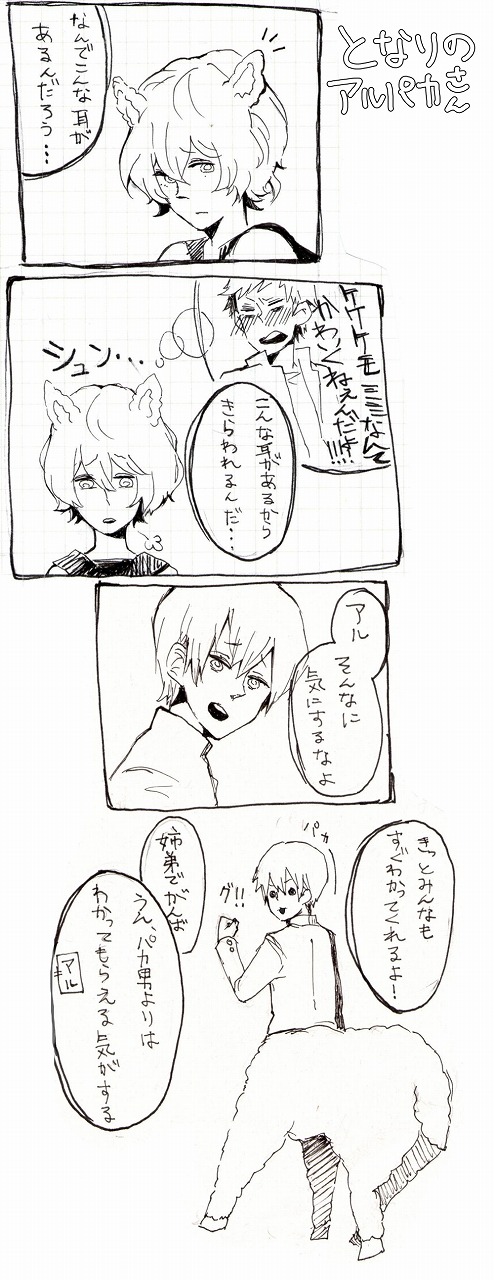 となりの
アルパカさん
なんでこんな耳が
あるんだろう…
ケケケモミミなんて
かわいくねぇんだよ!!!!
シュン…
こんな耳があるから
きらわれるんだ…
アル
そんなに
気にするなよ
きっとみんなも
すぐわかってくれるよ!
パカ
グ!!
姉弟でがんば
うん、パカ男よりは
わかってもらえる気がする
アル